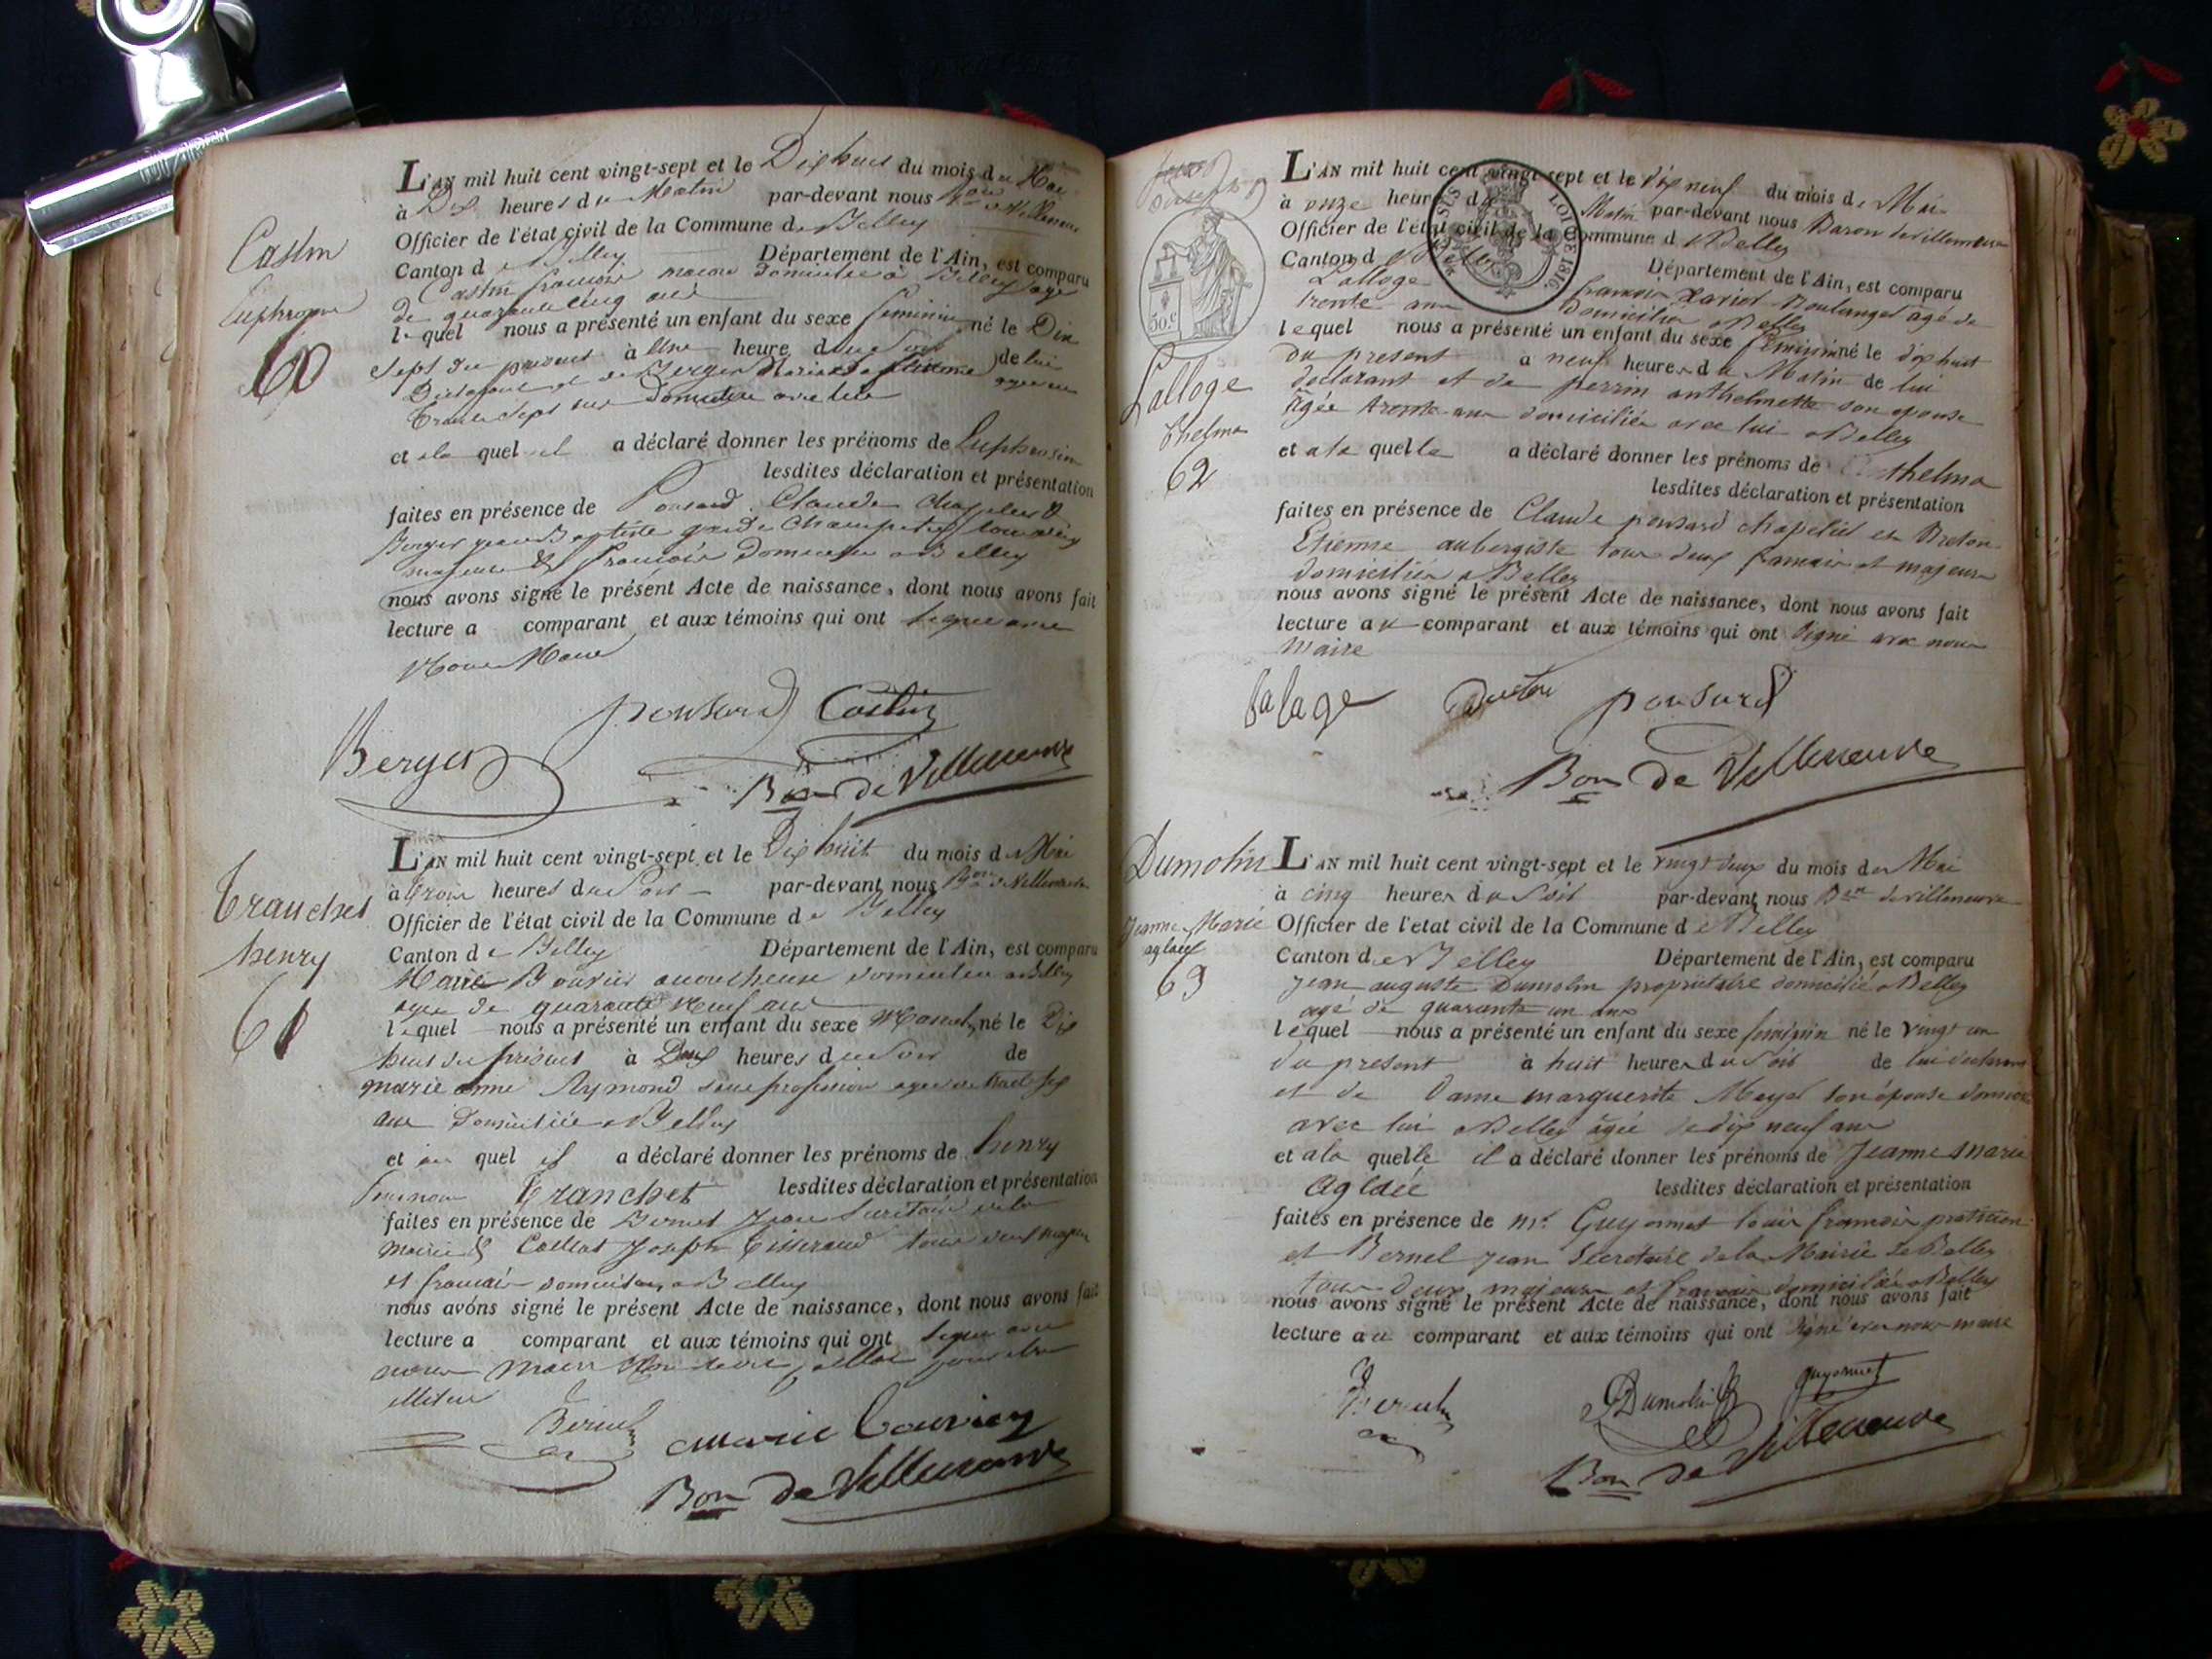 Castin
Euphrosine
60
L'AN mil huit cent vingt-sept et le Dix huit du mois de Mai
à Dix heures du Matin par-devant nous Bon de Villeneuve
Officier de l'état civil de la Commune de Belley
Canton de Belley Département de l'Ain, est comparu
Castin françois macon domicilié à Belley agé
de quarante cinq ans
lequel nous a présenté un enfant du sexe feminin né le Dix
sept du présent à Une heure du Soir de lui
Déclarant et de Berger agée de
trente sept ans Domiciliée avec lui
et a la quel il a déclaré donner les prénoms de Euphrosine
lesdites déclaration et présentation
faites en présence de Ponsard Claude Chapelier &
Berger jean Baptiste garde Champetre tous deux
majeurs & françois Domiciliés a Belley
nous avons signé le présent Acte de naissance, dont nous avons fait
lecture a comparant et aux témoins qui ont signé avec
Nous Maire
ponsard Castin
Berger
Bon de Villeneuve
Tranchet
henry
61
L'AN mil huit cent vingt-sept et le Dix huit du mois de Mai
à trois heures du Soir par-devant nous Bon de Villeneuve
Officier de l'état civil de la Commune de Belley
Canton de Belley Département de l'Ain, est comparu
Marie Bouvier acoucheuse domiciliée a Belley
agée de quarante Neuf ans
lequel nous a présenté un enfant du sexe Masculin né le Dix
huit du présent à Deux heures du Soir de
marie anne Aymond sans profession agée de trente six
ans Domiciliée a Belley
et au quel il a déclaré donner les prénoms de henry
Surnom Tranchet lesdites déclaration et présentation
faites en présence de Bernel Jean Secrétaire de la
mairie & Collat Joseph tisserand tous deux majeurs
et francais domiciliés a Belley
nous avons signé le présent Acte de naissance, dont nous avons fait
lecture a comparant et aux témoins qui ont signé avec
nous Maire
Bernel marie bouvier
Bon de Villeneuve
50.c
Lalloge
thelma
62
L'AN mil huit cent vingt-sept et le dix neuf du mois de Mai
à onze heures du Matin par-devant nous Baron de villeneuve
Officier de l'état civil de la Commune de Belley
Canton de Belley Département de l'Ain, est comparu
Lalloge francois Xavier Boulanger agé de
trente ans Domicilié a Belley
lequel nous a présenté un enfant du sexe féminin né le dix huit
du présent a neuf heures du Matin de lui
declarant et de perrin anthelmette son epouse
âgée trente ans domiciliée avec lui a Belley
et a la quelle a déclaré donner les prénoms de anthelma
lesdites déclaration et présentation
faites en présence de Claude ponsard chapelier et Breton
Etienne aubergiste tous deux francais et majeurs
domiciliés a Belley
nous avons signé le présent Acte de naissance, dont nous avons fait
lecture au comparant et aux témoins qui ont signé avec nous
Maire
lalage ponsard
Bon de Villeneuve
Dumolin
Jeanne Marie
aglaée
63
L'AN mil huit cent vingt-sept et le vingt deux du mois de Mai
à cinq heures du Soir par-devant nous Bon de villeneuve
Officier de l'état civil de la Commune de Belley
Canton de Belley Département de l'Ain, est comparu
jean auguste Dumolin propriétaire domicilié a Belley
agé de quarante un ans
lequel nous a présenté un enfant du sexe feminin né le vingt un
du present à huit heures du Soir de lui declarant
et de Dame marguerite Meyer son épouse domiciliée
avec lui a Belley âgée de dix neuf ans
et a la quelle il a déclaré donner les prénoms de Jeanne Marie
Aglaée lesdites déclaration et présentation
faites en présence de mr. Guyonnet louis francois praticien
et Bernel jean Secretaire de la Mairie de Belley
tous deux majeurs et francais domiciliés a Belley
nous avons signé le présent Acte de naissance, dont nous avons fait
lecture au comparant et aux témoins qui ont signé avec nous maire
Bernel Dumolin guyonnet
Bon de Villeneuve